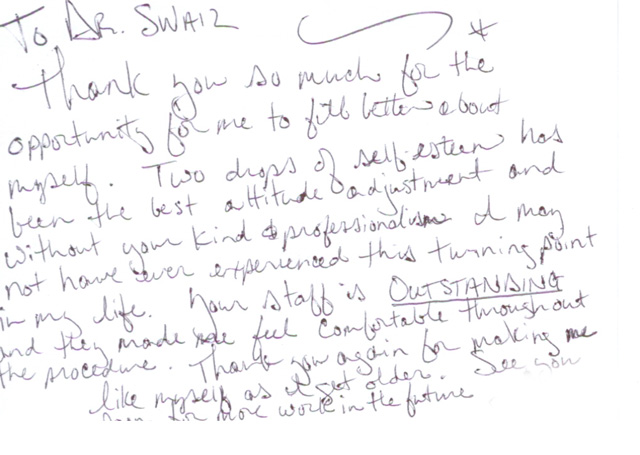 To Dr. SWAIL
Thank you so much for the
opportunity for me to fell better about
myself. Two drops of self-esteem has
been the best attitude adjustment and
without your kind & professionalism I may
not have ever experienced this turning point
in my life. Your staff is OUTSTANDING
and they made me feel comfortable throughout
the procedure. Thank you again for making me
like myself as I get older. See you
for more work in the future